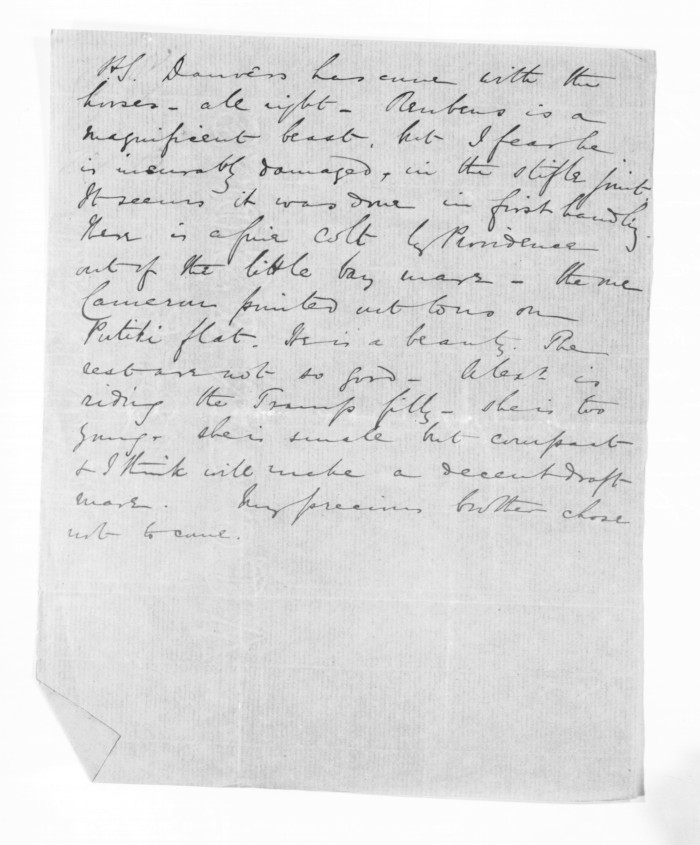 P.S. Danvers has come with the
horses - all right - Reubens is a
magnificent beast, but I fear he
is incurably damaged, in the stifle joint
It seems it was done in first handling.
There is a fine colt by Providence
out of the little bay mare - the one
Cameron pointed out to us on
Putiki flat. He is a beauty. The
rest are not so good - Alexr. is
riding the Tramp filly - she is too
young. she is small but compact
& I think will make a decent draft
mare. My precious brother chose
not to come.